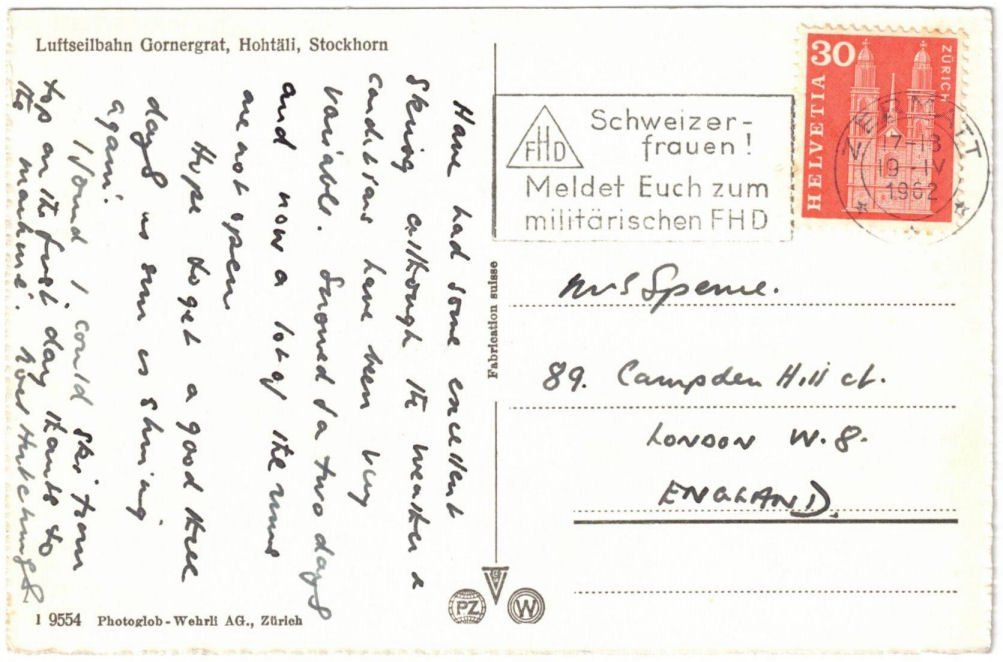 Luftseilbahn Gornergrat, Hohtäli, Stockhorn
Have had some excellent
skiing although the weather &
conditions have been very
variable. Snowed for two days
and now a lot of the runs
are not open.
Hope to get a good three
days as sun is shining
again.
Found I could ski from
top on the first day thanks to
the machine.
1 9554 Photoglob-Wehrli AG., Zürich
Fabrication suisse
PZ
W
FHD
Schweizer-
frauen!
Meldet Euch zum
militärischen FHD
30
HELVETIA
ZÜRICH
ZERMATT
17-18
19-IV
1962
Mrs Spence.
89. Campden Hill ct.
LONDON W.8.
ENGLAND.